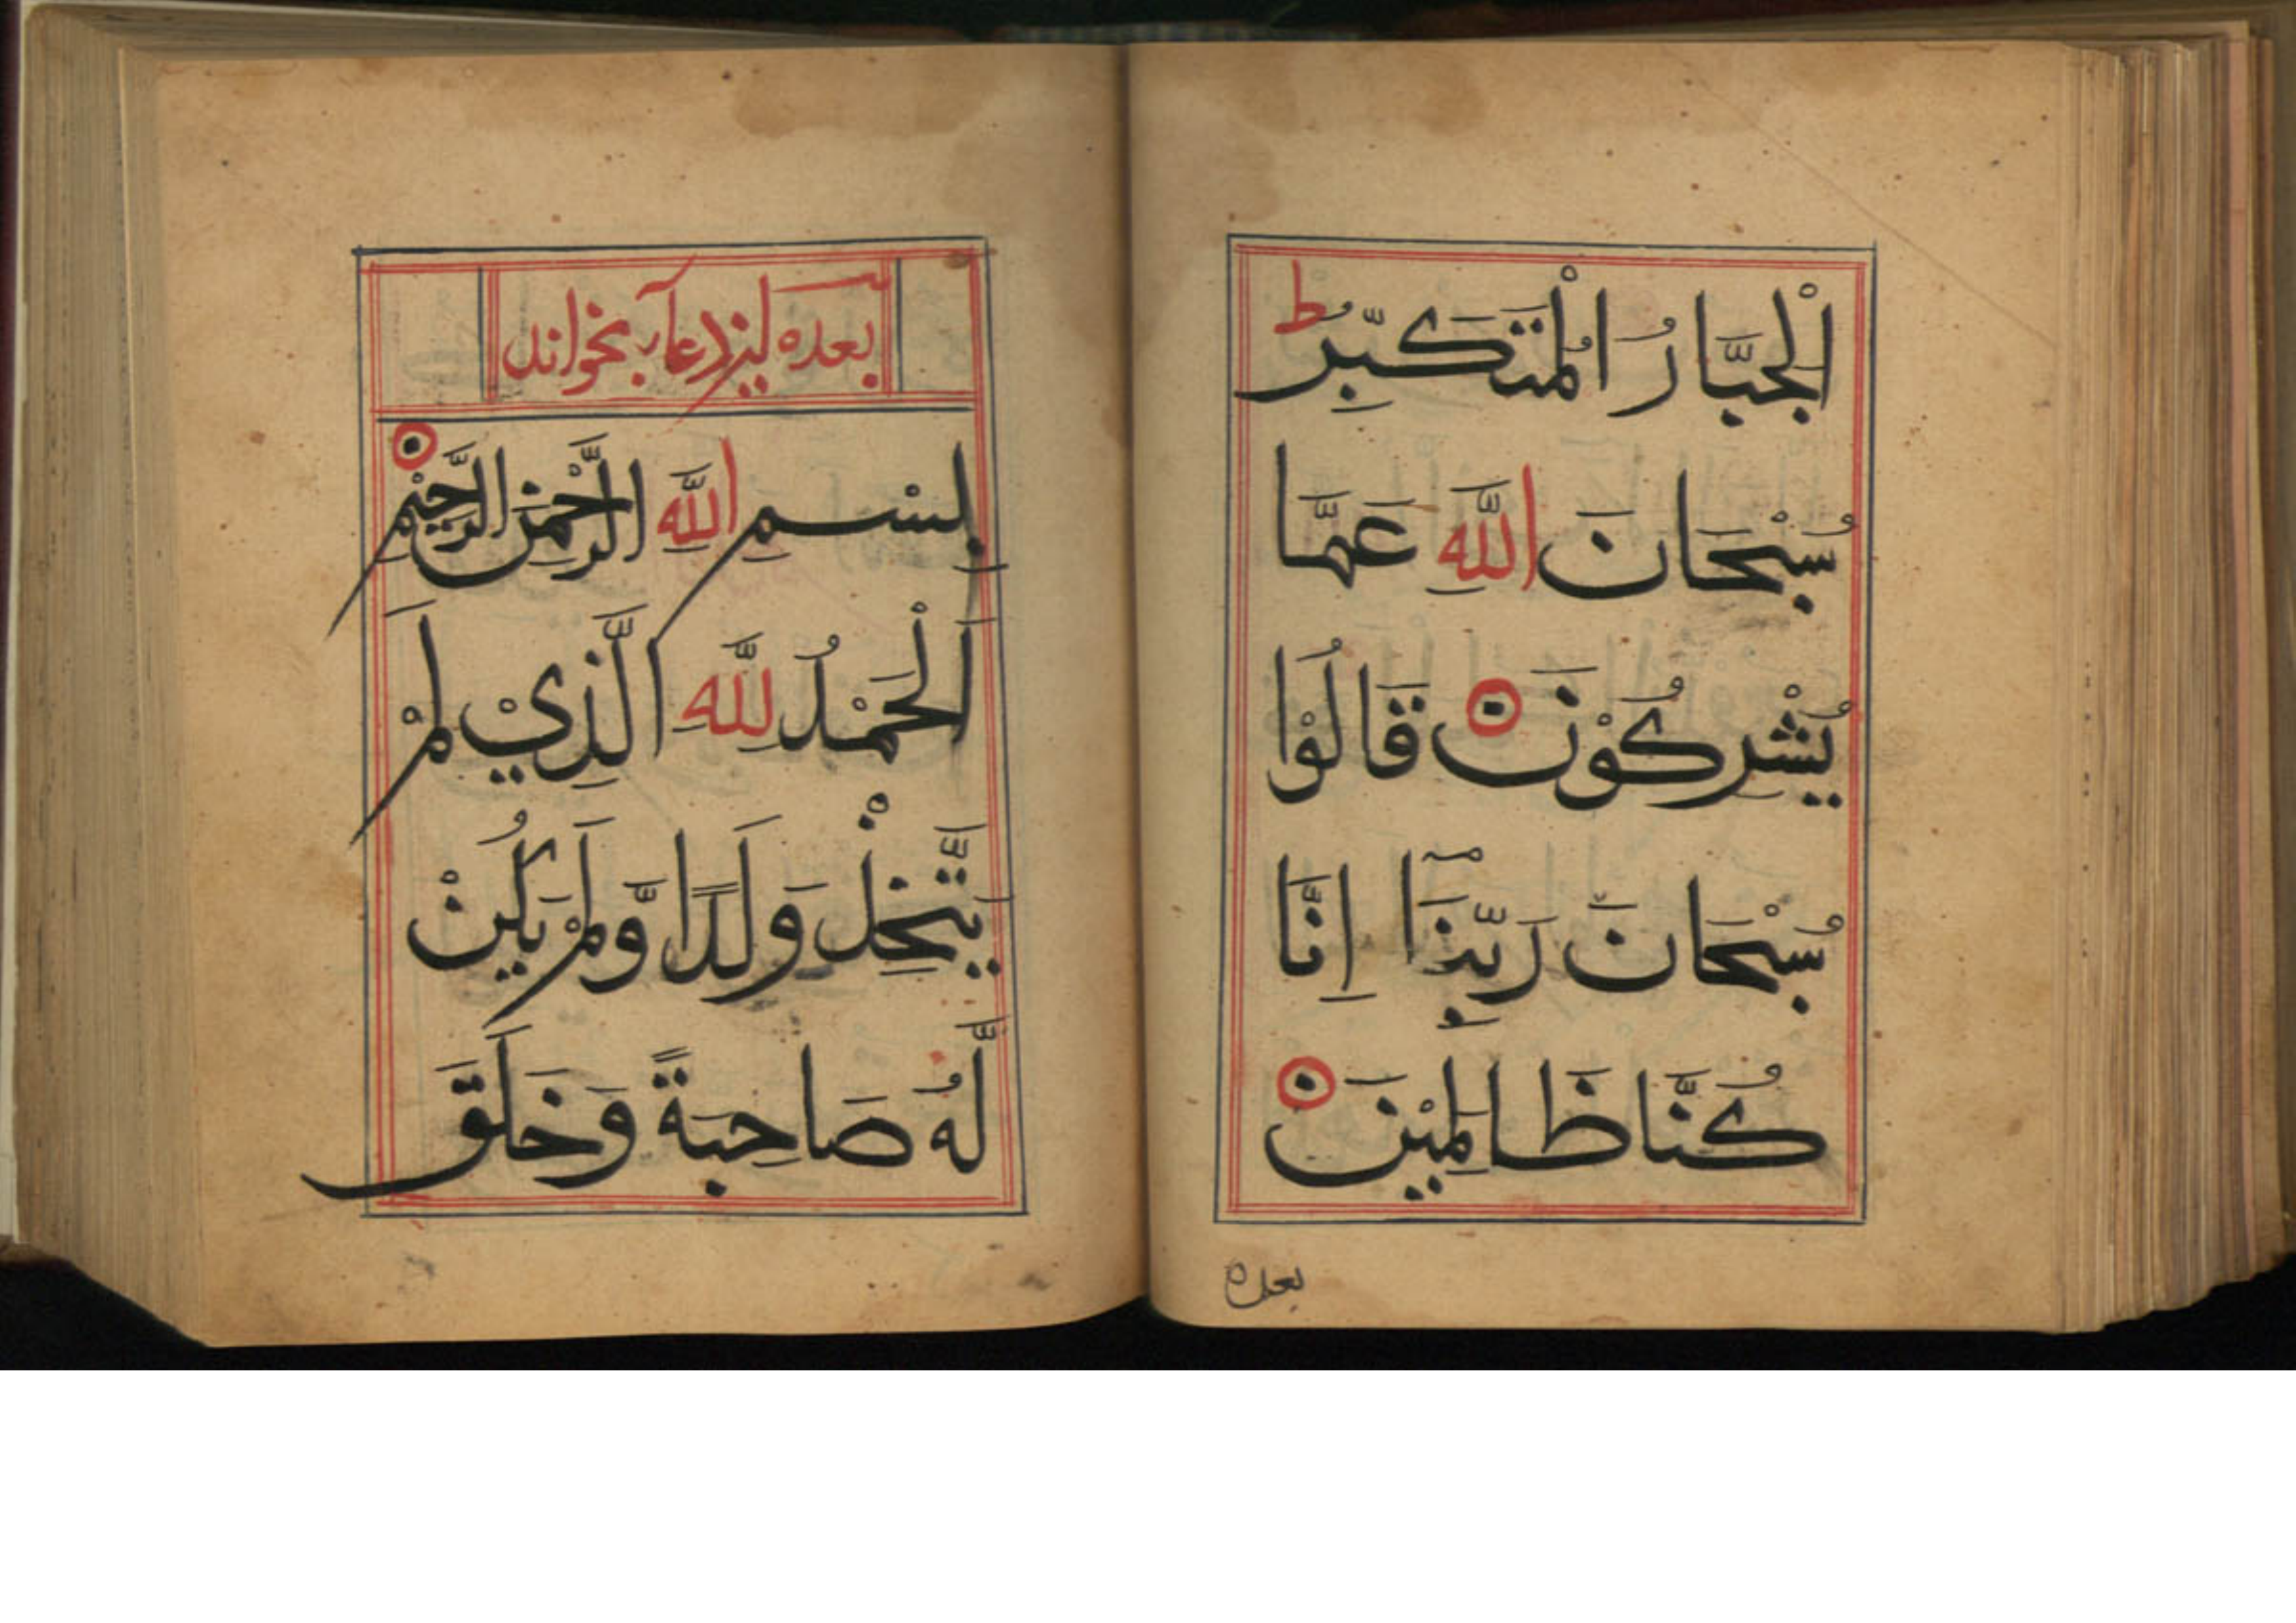 الْجَبَّارُ الْمُتَكَبِّرُ ط
سُبْحَانَ اللّٰهِ عَمَّا
يُشْرِكُوْنَ قَالُوْا
سُبْحَانَ رَبِّنَآ اِنَّا
كُنَّا ظَالِمِيْنَ
بعده
بعده این دعا بخواند
بِسْمِ اللّٰهِ الرَّحْمٰنِ الرَّحِيْمِ
اَلْحَمْدُ لِلّٰهِ الَّذِيْ لَمْ
يَتَّخِذْ وَلَدًا وَّلَمْ يَكُنْ
لَّهُ صَاحِبَةً وَخَلَقَ